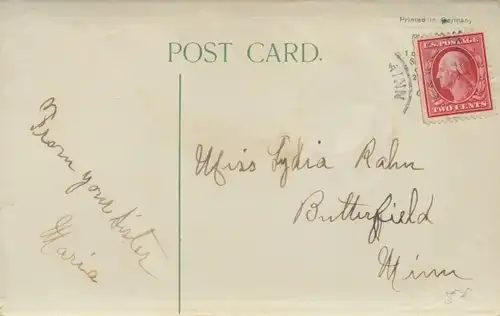 Printed in Germany
POST CARD.
U.S. POSTAGE
TWO CENTS
MINN
From your sister
Maria
Miss Lydia Rahn
Butterfield
Minn